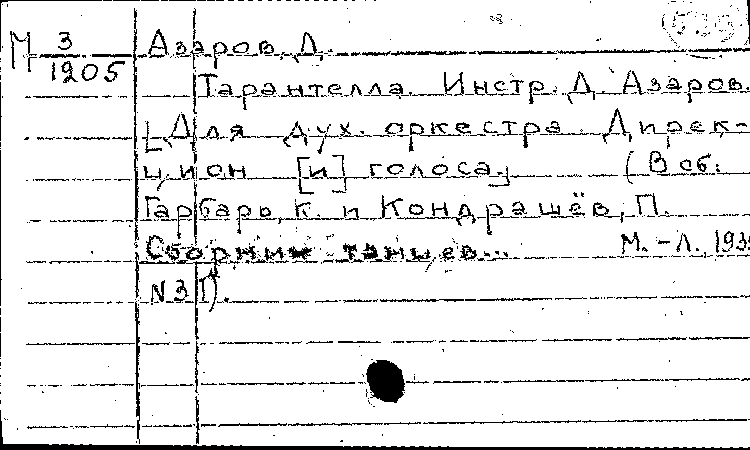 М 3 Азаров, Д.
1205
Тарантелла. Инстр. Д. Азаров.
[Для дух. оркестра. Дирек-
цион [и] голоса]. (В сб:
Гарбарь, К. и Кондрашёв, П.
Сборник танцев... М.-Л., 193
N3